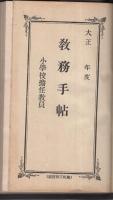 大正　年度
教務手帖
小學校擔任教員